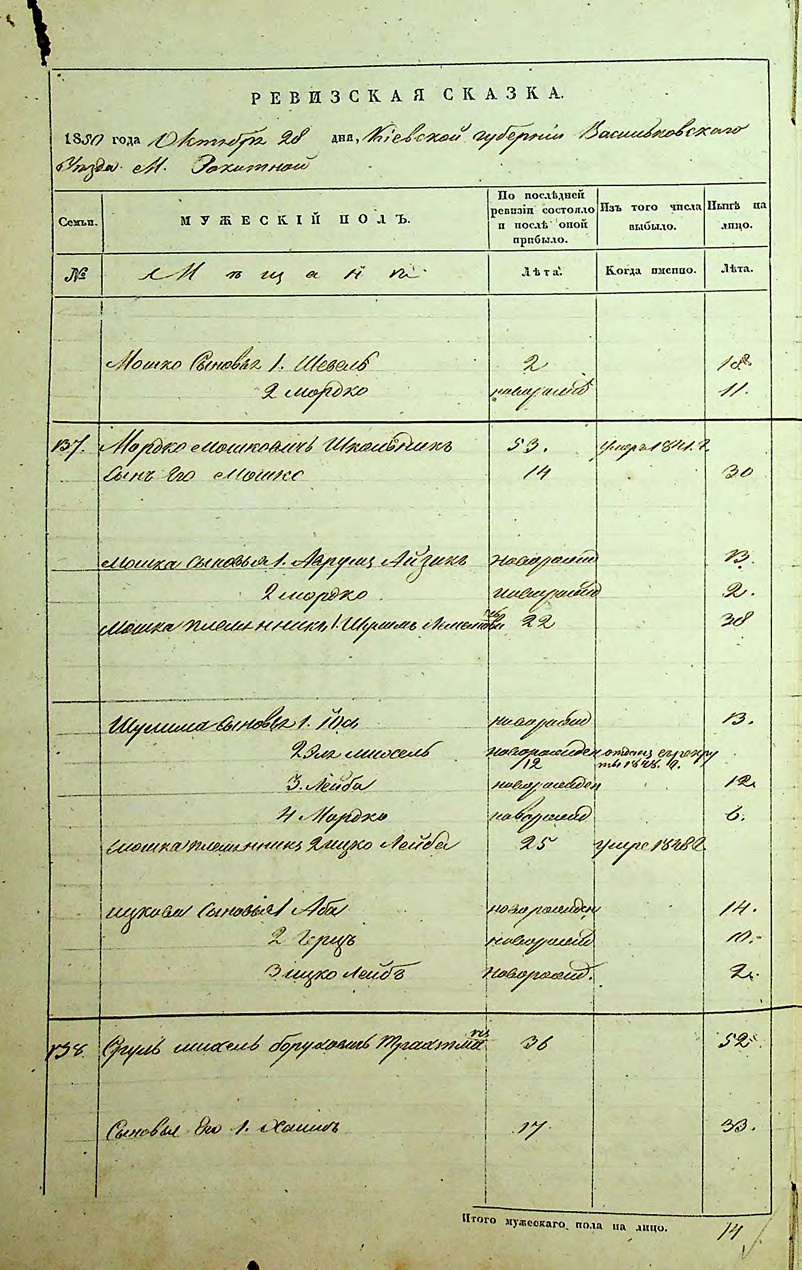 РЕВИЗСКАЯ СКАЗКА.
1850 года Октября 28 дня, Кіевской губерніи Васильковскаго
Уѣзда М. Рокитной
Семьи. МУЖЕСКІЙ ПОЛЪ. По послѣдней ревизіи состояло и послѣ оной прибыло. Изъ того числа выбыло. Нынѣ на лицо.
№ Мѣщане Лѣта. Когда именно. Лѣта.
Мошко Сыновья 1. Шевель 2 18
2 Мордко новорожд 11.
137. Мордко Мошковичъ Школьникъ 53. умеръ 1841. г
Сынъ Его Мошко 14 30
Мошка сыновья 1. Аврумъ Айзикъ новорожд 13.
2 Мордко новорожд 2.
Мошка племянникъ 1. Шулимъ 22 38
Шулима Сыновья 1. Йось новорожд 13.
2 Эль Михель новорожден 12 отданъ в рекруты 1848. г.
3 Лейба новорожден 12.
4 Мордко новорожд 6.
Мошка племянникъ 2 Ицко Лейба 25 умре 1848 г
Ицкова Сыновья 1 Аба новорожден 14.
2 Герцъ новорожд 10.
3 Ицко Лейбъ новорожд. 2.
138. Сруль Михель Боруховичъ Трахтман 36 52.
Сыновья Его 1. Хаимъ 17 33.
Итого мужескаго пола на лицо. 14